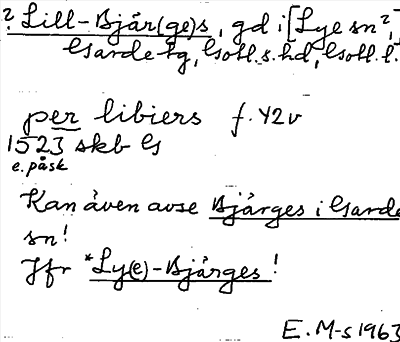 ? Lill-Bjär(ge)s, gd i [Lye sn?,]
Garde tg, Gotl. s. hd, Gotl. l.
per libiers f. 42v
1523 skb G
e. påsk
Kan även avse Bjärges i Garde
sn!
Jfr *Ly(e)-Bjärges!
E. M-s 1963